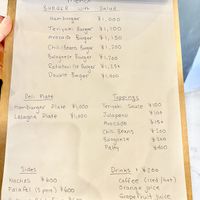 BURGER with Salad
Hamburger ¥1,000
Teriyaki Burger ¥1,100
Avocado Burger ¥1,150
Chili Beans Burger ¥1,200
Bolognese Burger ¥1,200
Ratatouille Burger ¥1,250
Double Burger ¥1,400
Deli Plate
Hamburger Plate ¥1,000
Lasagna Plate ¥1,000
Toppings
Teriyaki Sauce ¥100
Jalapeno ¥100
Avocado ¥150
Chili Beans ¥200
Bolognese ¥200
Patty ¥400
Sides
Nachos ¥600
Falafel (3 pcs) ¥600
Drinks ¥200
Coffee (iced/hot)
Orange juice
Grapefruit juice